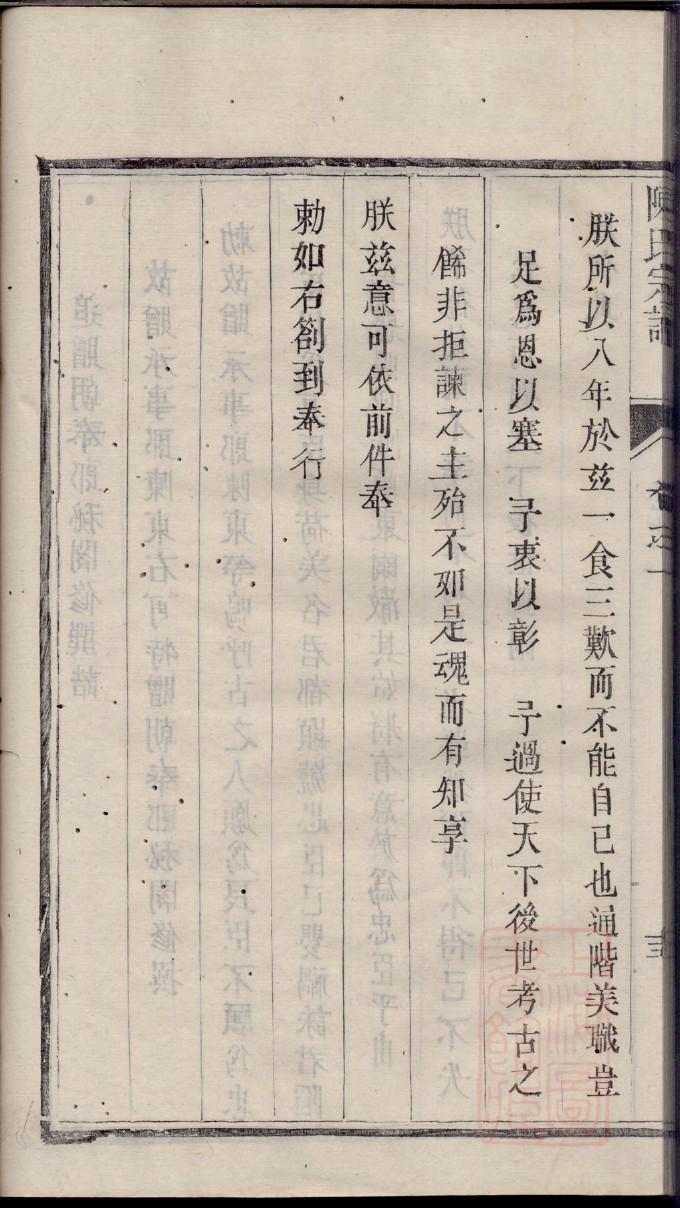 陳氏宗譜
卷之一
朕所以八年於茲一食三歎而不能自已也通階美職豈
足為恩以塞　予衷以彰　予過使天下後世考古之
餙非拒諫之主殆不如是魂而有知享
朕茲意可依前件奉
勅如右劄到奉行